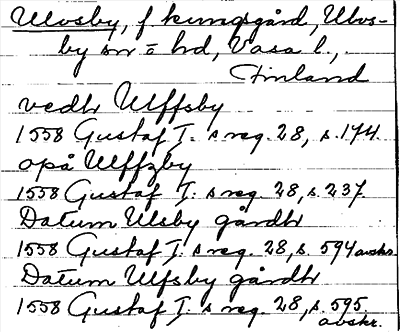 Ulvsby, f kungsgård, Ulvs-
by sn o hd, Vasa l.,
Finland
vedh Ulffsby
1558 Gustaf I. s reg. 28, s. 174.
opå Ulffzby
1558 Gustaf I. s reg. 28, s. 237.
Datum Ulsby gårdh
1558 Gustaf I. s reg. 28, s. 594 avskr.
Datum Ulfsby gårdh
1558 Gustaf I. s reg. 28, s. 595.
avskr.